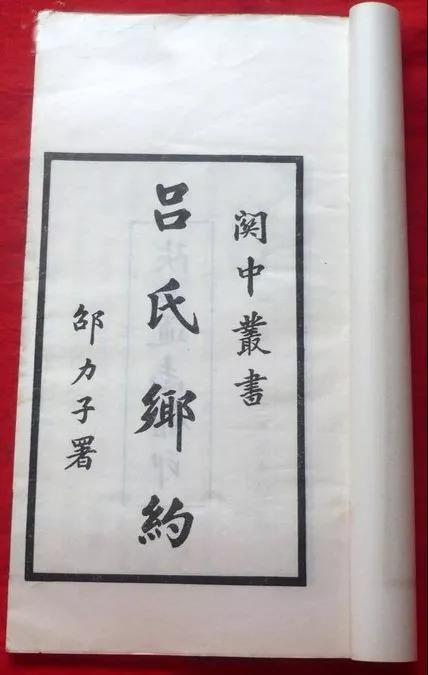 関中叢書
吕氏鄉約
邵力子署